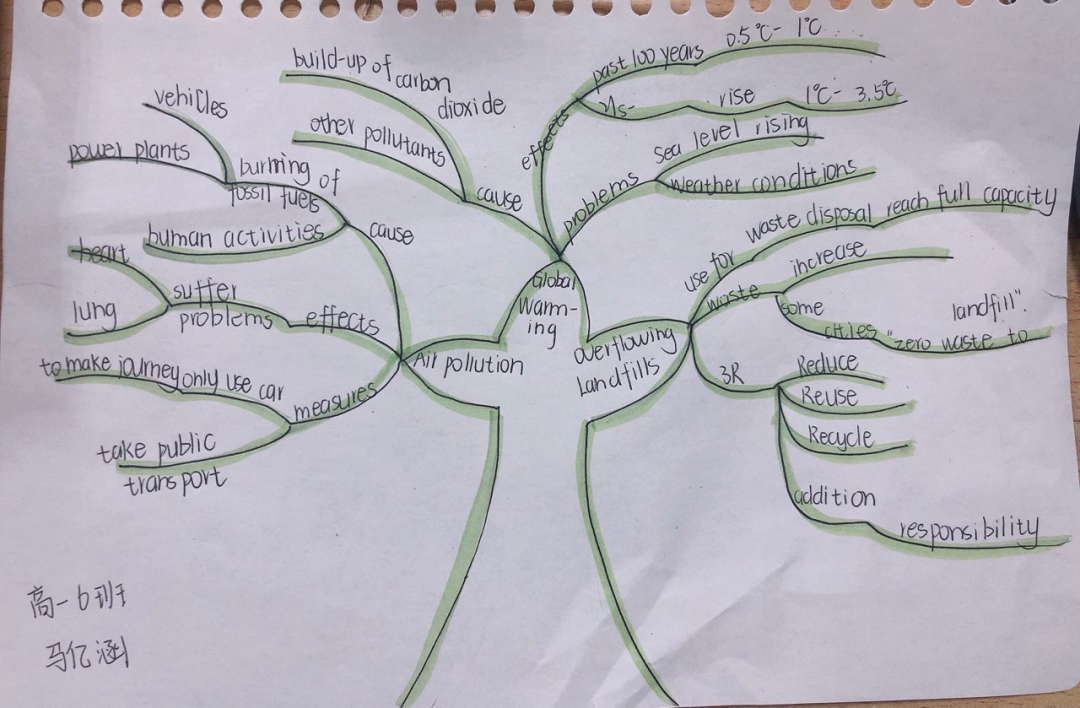 build-up of carbon
dioxide
other pollutants
cause
effects
past 100 years 0.5℃- 1℃
rise 1℃- 3.5℃
problems
sea level rising
weather conditions
Global
warm-
ing
vehicles
power plants
burning of
fossil fuels
human activities
cause
heart
lung
suffer
problems
effects
to make journey only use car
take public
transport
measures
Air pollution
overflowing
landfills
use for waste disposal reach full capacity
waste increase
some
cities "zero waste to
landfill".
3R
Reduce
Reuse
Recycle
addition
responsibility
高一6班
马亿涵